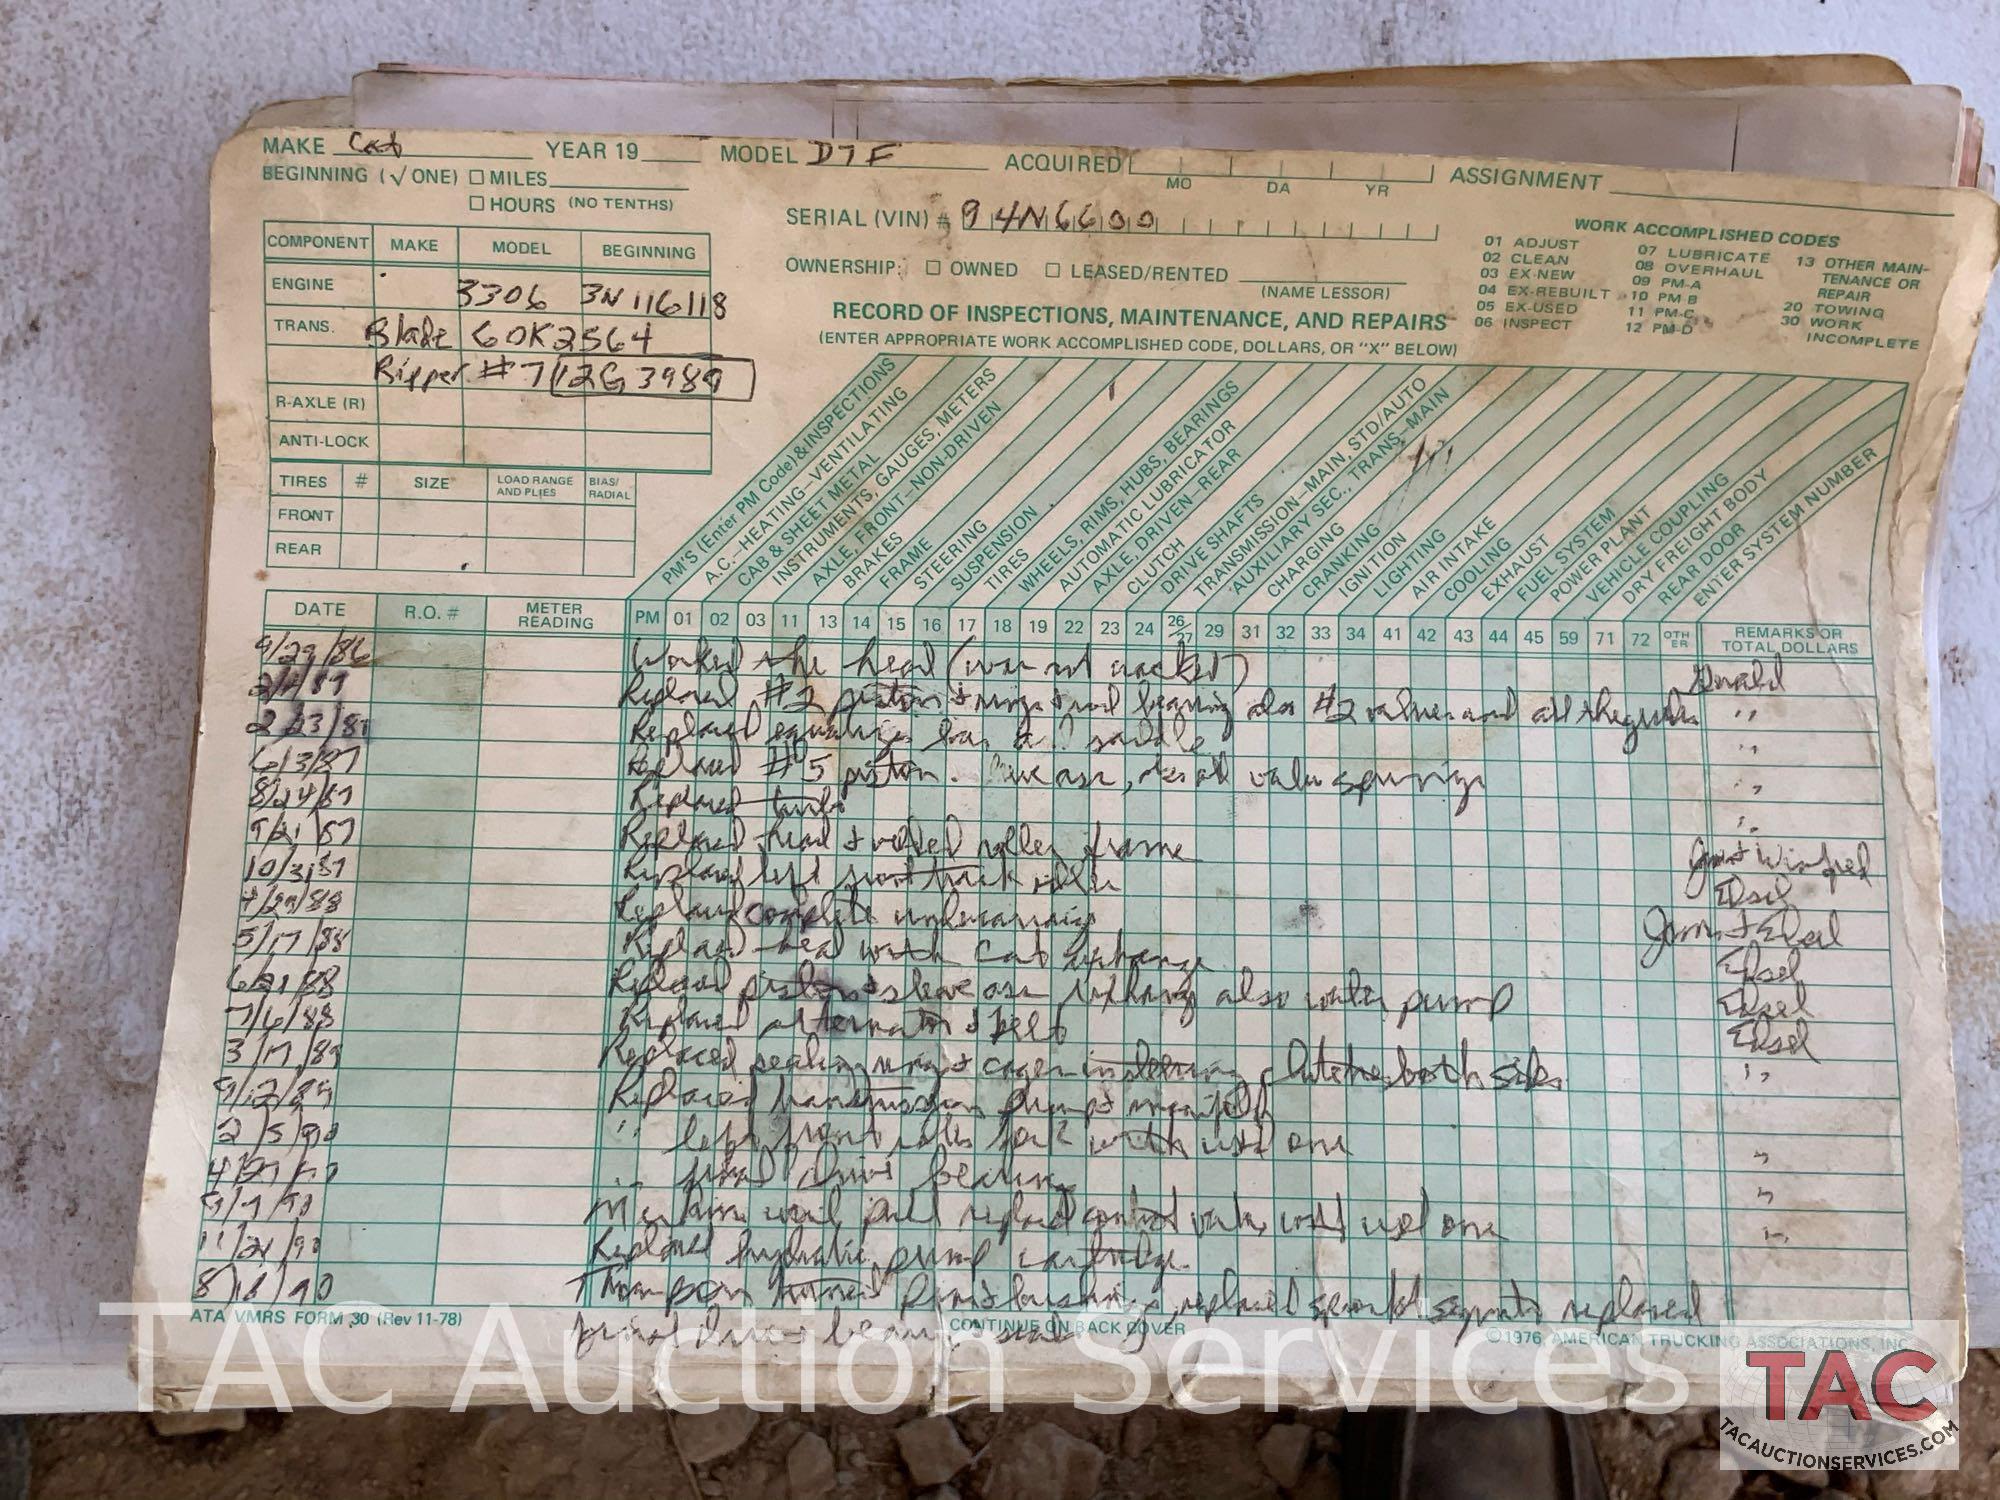 MAKE Cat YEAR 19 MODEL D7F ACQUIRED MO DA YR ASSIGNMENT
BEGINNING (√ ONE) □ MILES
□ HOURS (NO TENTHS)
SERIAL (VIN) # 94N6600
OWNERSHIP: □ OWNED □ LEASED/RENTED
(NAME LESSOR)
WORK ACCOMPLISHED CODES
01 ADJUST
02 CLEAN
03 EX-NEW
04 EX-REBUILT
05 EX-USED
06 INSPECT
07 LUBRICATE
08 OVERHAUL
09 PM-A
10 PM B
11 PM-C
12 PM-D
13 OTHER MAIN-
TENANCE OR
REPAIR
20 TOWING
30 WORK
INCOMPLETE
COMPONENT MAKE MODEL BEGINNING
ENGINE 3306 3N116118
TRANS. Blade 60K2564
Ripper #7 12G3989
R-AXLE (R)
ANTI-LOCK
TIRES # SIZE LOAD RANGE AND PLIES BIAS/ RADIAL
FRONT
REAR
RECORD OF INSPECTIONS, MAINTENANCE, AND REPAIRS
(ENTER APPROPRIATE WORK ACCOMPLISHED CODE, DOLLARS, OR "X" BELOW)
PM'S (Enter PM Code) & INSPECTIONS
A.C.-HEATING-VENTILATING
CAB & SHEET METAL
INSTRUMENTS, GAUGES, METERS
AXLE, FRONT-NON-DRIVEN
BRAKES
FRAME
STEERING
SUSPENSION
TIRES
WHEELS, RIMS, HUBS, BEARINGS
AUTOMATIC LUBRICATOR
AXLE, DRIVEN-REAR
CLUTCH
DRIVE SHAFTS
TRANSMISSION-MAIN, STD/AUTO
AUXILIARY SEC., TRANS.-MAIN
CHARGING
CRANKING
IGNITION
LIGHTING
AIR INTAKE
COOLING
EXHAUST
FUEL SYSTEM
POWER PLANT
VEHICLE COUPLING
DRY FREIGHT BODY
REAR DOOR
ENTER SYSTEM NUMBER
DATE R.O. # METER READING PM 01 02 03 11 13 14 15 16 17 18 19 22 23 24 26/27 29 31 32 33 34 41 42 43 44 45 59 71 72 OTHER REMARKS OR TOTAL DOLLARS
9/29/86 Worked the head (was not cracked) Donald
Replaced #2 piston + rings + rod bearing also #2 valves and all the guides "
2/23/87 Replaced equalizer bar saddle "
6/3/87 Replaced #5 piston. all valve springs "
8/24/87 Replaced turbo "
9/21/87 Replaced head + welded roller frame
10/3/87 Replaced left front track roller Edsel
4/29/88 Replaced complete undercarriage
5/17/88 Replaced head with Cat exchange Edsel
6/21/88 Replaced pistons + sleeve exchange also water pump Edsel
7/6/88 Replaced alternator & belt Edsel
3/17/89 Replaced sealing rings + cages in steering clutches both sides "
9/12/89 Replaced transmission pump + manifold
2/5/90 " left front with used one "
final drive bearing "
9/7/90 replaced control valve with used one "
11/21/90 Replaced hydraulic pump cartridge.
8/18/90 Thompson turned pins + bushings, replaced sprocket segments replaced
final drive bearing seals
ATA VMRS FORM 30 (Rev 11-78) CONTINUE ON BACK COVER ©1976, AMERICAN TRUCKING ASSOCIATIONS, INC.
TAC Auction Services
TAC
TACAUCTIONSERVICES.COM